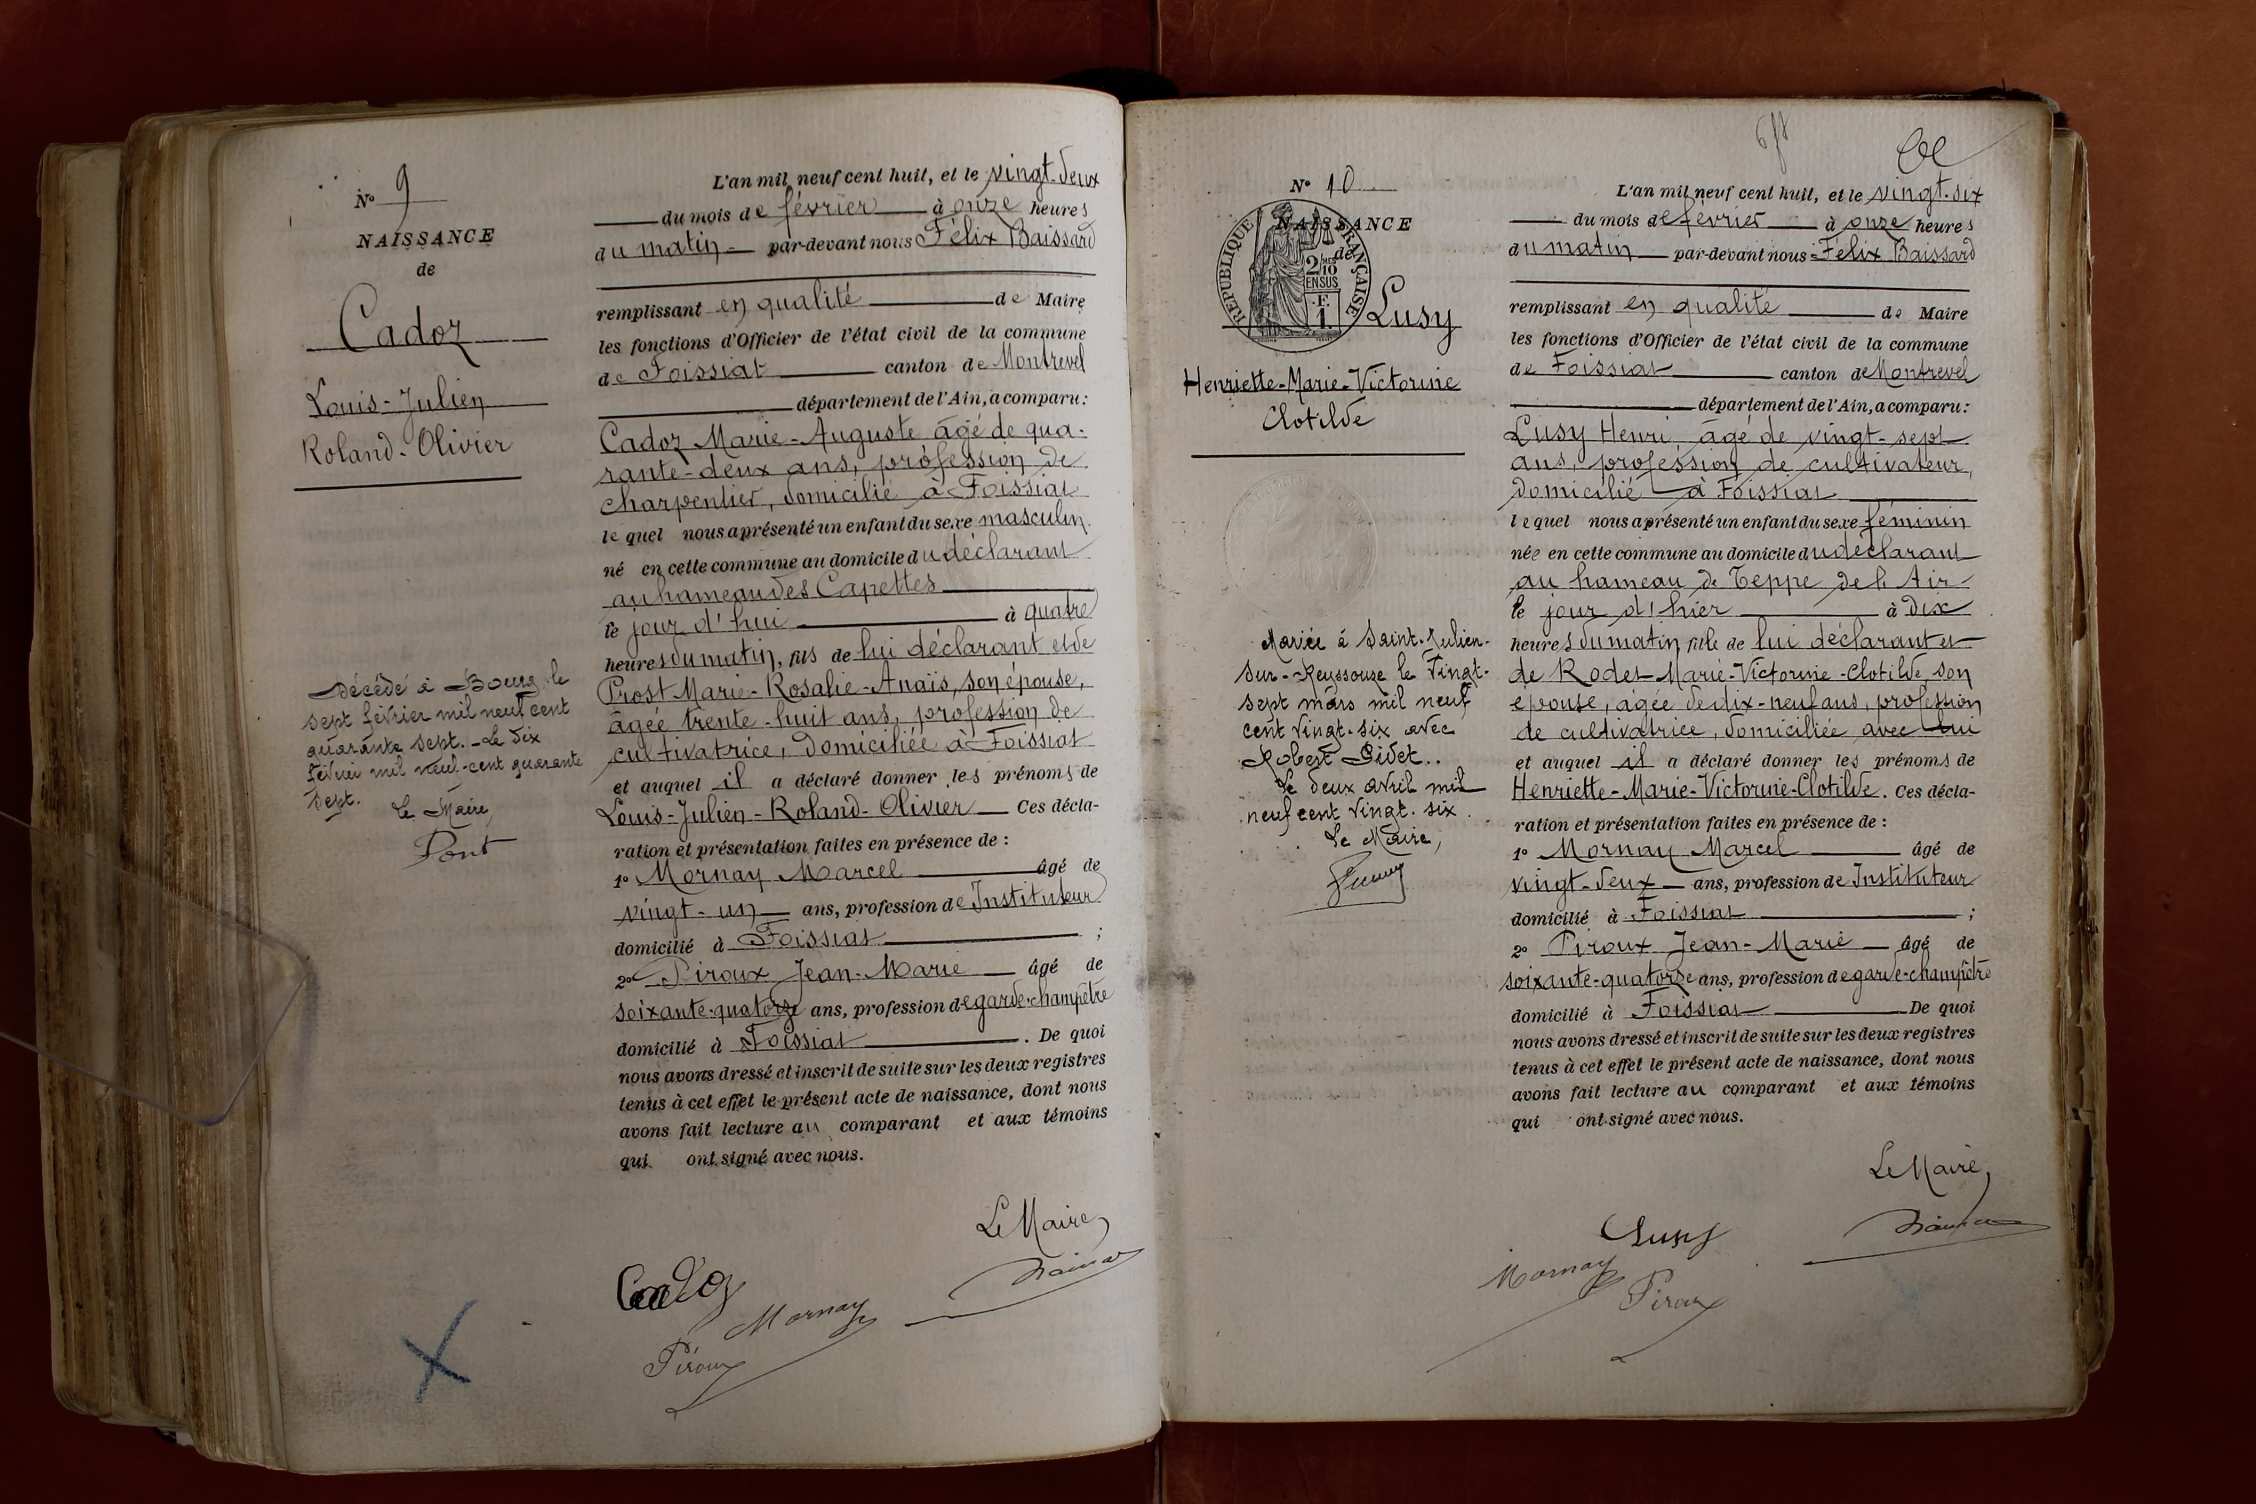 Nº 9
NAISSANCE
de
Cadoz
Louis-Julien
Roland-Olivier
Décédé à Bourg le
sept février mil neuf cent
quarante sept. - Le dix
février mil neuf-cent quarante
sept.
Le Maire,
Pont
L'an mil neuf cent huit, et le vingt-deux
du mois de février à onze heures
du matin par-devant nous Félix Baissard
remplissant en qualité de Maire
les fonctions d'Officier de l'état civil de la commune
de Foissiat canton de Montrevel
département de l'Ain, a comparu:
Cadoz Marie-Auguste âgé de qua-
rante-deux ans, profession de
charpentier, domicilié à Foissiat
lequel nous a présenté un enfant du sexe masculin
né en cette commune au domicile du déclarant
au hameau des Capettes
le jour d'hui à quatre
heures du matin, fils de lui déclarant et de
Prost Marie-Rosalie-Anaïs, son épouse,
âgée trente-huit ans, profession de
cultivatrice, domiciliée à Foissiat
et auquel il a déclaré donner les prénoms de
Louis-Julien-Roland-Olivier Ces décla-
ration et présentation faites en présence de :
1º Mornay Marcel âgé de
vingt-un ans, profession de Instituteur
domicilié à Foissiat ;
2º Piroux Jean-Marie âgé de
soixante-quatorze ans, profession de garde-champêtre
domicilié à Foissiat . De quoi
nous avons dressé et inscrit de suite sur les deux registres
tenus à cet effet le présent acte de naissance, dont nous
avons fait lecture au comparant et aux témoins
qui ont signé avec nous.
Le Maire,
Cadoz
Mornay
Piroux
Nº 10
NAISSANCE
de
REPUBLIQUE FRANÇAISE
2/10
EN SUS
Lusy
Henriette-Marie-Victorine
Clotilde
Mariée à Saint-Julien-
sur-Reyssouze le vingt-
sept mars mil neuf
cent vingt-six avec
Robert Gidet..
Le deux avril mil
neuf cent vingt-six.
Le Maire,
L'an mil neuf cent huit, et le vingt-six
du mois de février à onze heures
du matin par-devant nous Félix Baissard
remplissant en qualité de Maire
les fonctions d'Officier de l'état civil de la commune
de Foissiat canton de Montrevel
département de l'Ain, a comparu:
Lusy Henri, âgé de vingt-sept
ans, profession de cultivateur,
domicilié à Foissiat
lequel nous a présenté un enfant du sexe féminin
née en cette commune au domicile du déclarant
au hameau de Teppe de
le jour d'hier à dix
heures du matin fille de lui déclarant et
de Rodet Marie-Victorine-Clotilde, son
épouse, âgée de dix-neuf ans, profession
de cultivatrice, domiciliée avec lui
et auquel il a déclaré donner les prénoms de
Henriette-Marie-Victorine-Clotilde. Ces décla-
ration et présentation faites en présence de :
1º Mornay Marcel âgé de
vingt-deux ans, profession de Instituteur
domicilié à Foissiat ;
2º Piroux Jean-Marie âgé de
soixante-quatorze ans, profession de garde-champêtre
domicilié à Foissiat De quoi
nous avons dressé et inscrit de suite sur les deux registres
tenus à cet effet le présent acte de naissance, dont nous
avons fait lecture au comparant et aux témoins
qui ont signé avec nous.
Le Maire,
Lusy
Mornay
Piroux